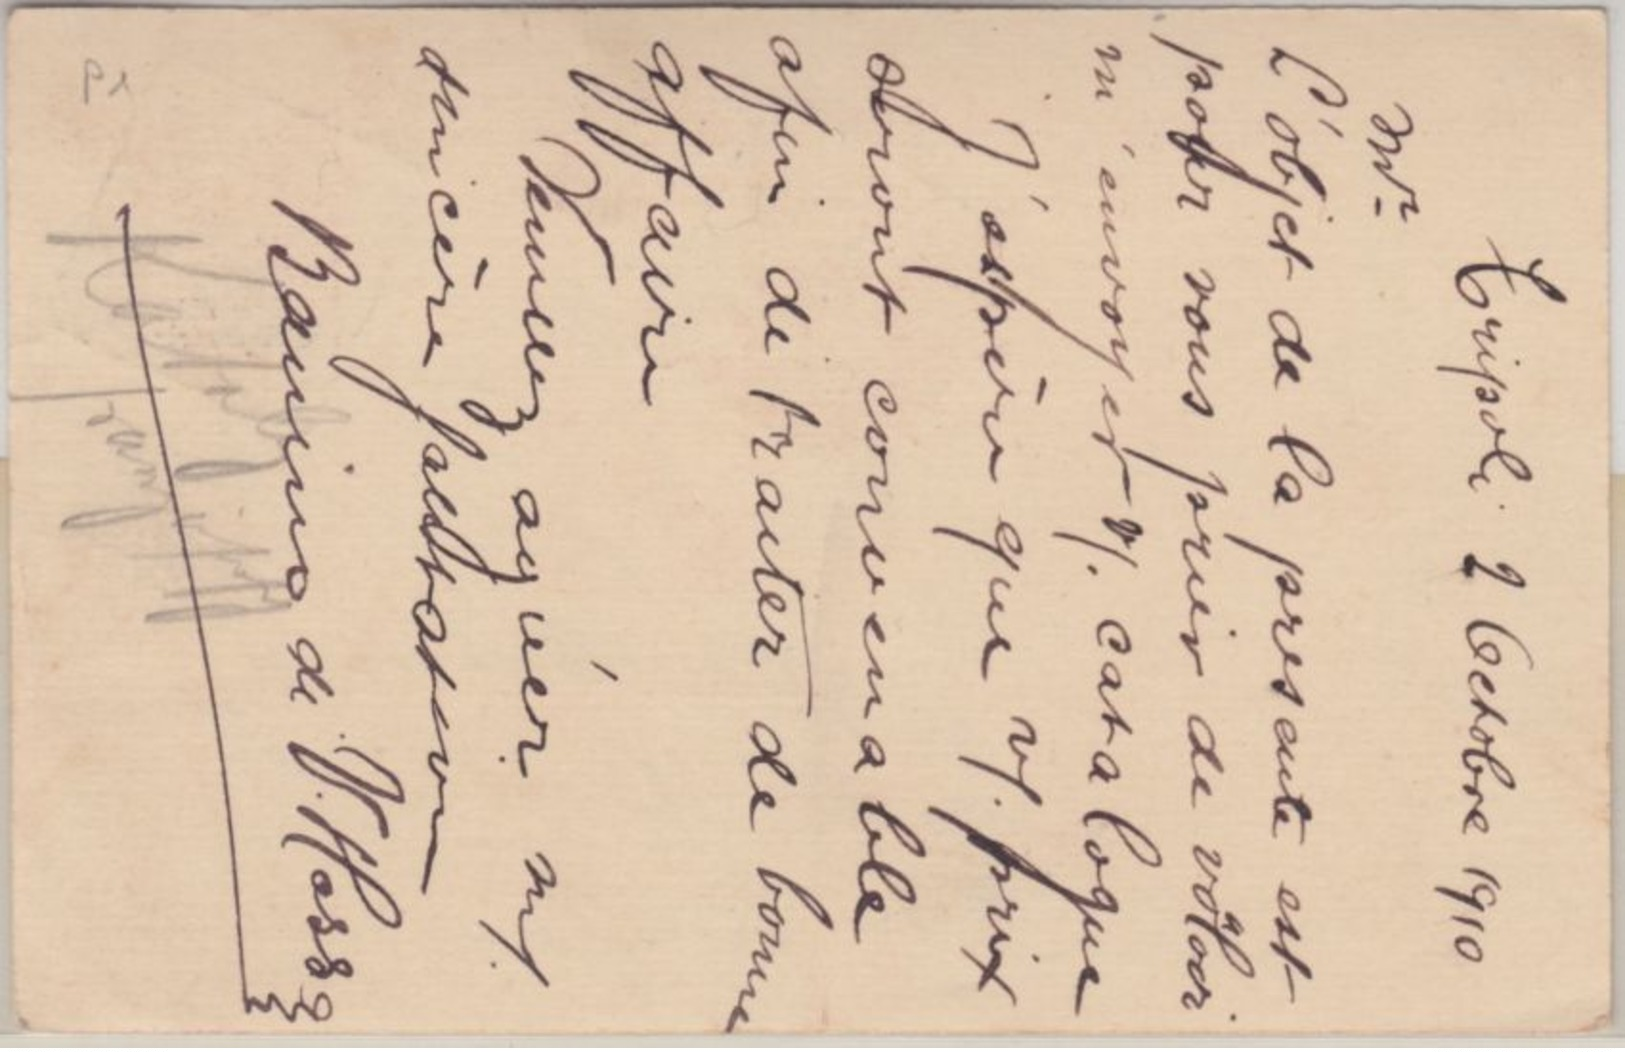 Tripoli 2 Octobre 1910
Mr
L'objet de la presente est
pour vous prier de voloir
m'envoyer v/. catalogue
J'éspère que v/. prix
séront convenable
afin de traiter de bonne
affaire
Veuillez agréer m/.
sincère salutation
Bamino di V. Hassa